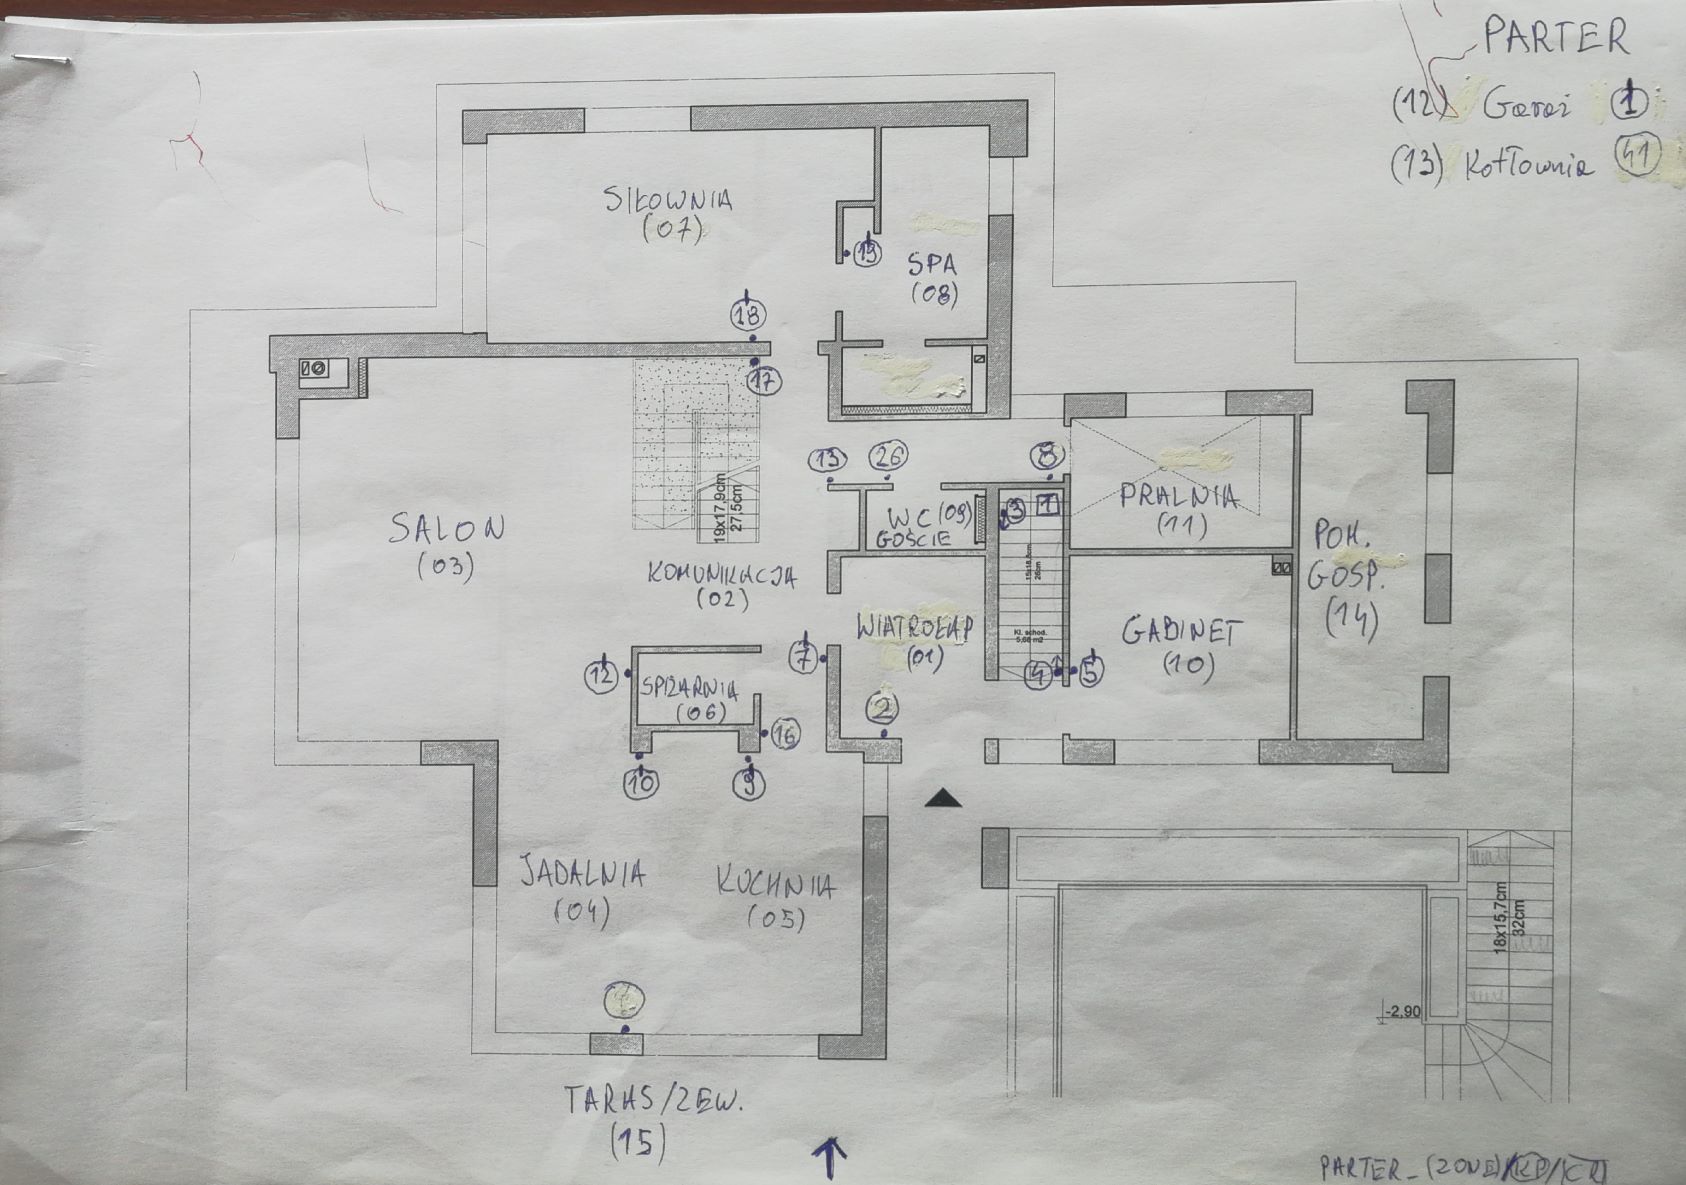 PARTER
(12) Garaż 1
(13) Kotłownia 41
SIŁOWNIA
(07)
19
SPA
(08)
18
17
13
26
8
19x17,9cm
27,5cm
SALON
(03)
WC (09)
GOŚCIE
3
1
PRALNIA
(11)
POM.
GOSP.
(14)
KOMUNIKACJA
(02)
WIATROŁAP
(01)
Kl. schod.
5,66 m2
GABINET
(10)
12
7
SPIŻARNIA
(06)
4
5
2
16
10
9
JADALNIA
(04)
KUCHNIA
(05)
18x15,7cm
32cm
-2,90
TARAS/ZEW.
(15)
PARTER_(ZONE)/